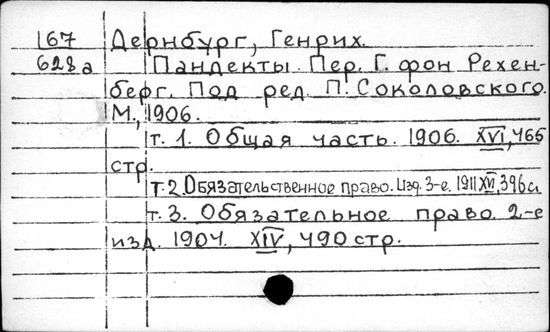 167 Дернбург, Генрих.
628а Пандекты. Пер. Г. фон Рехен-
берг. Под ред. П. Соколовского.
М., 1906.
т. 1. Общая часть. 1906. XVI, 465
стр.
т. 2. Обязательственное право. Изд. 3-е. 1911 XVI, 396 с.
т. 3. Обязательное право. 2-е
изд. 1904. XIV, 490 стр.